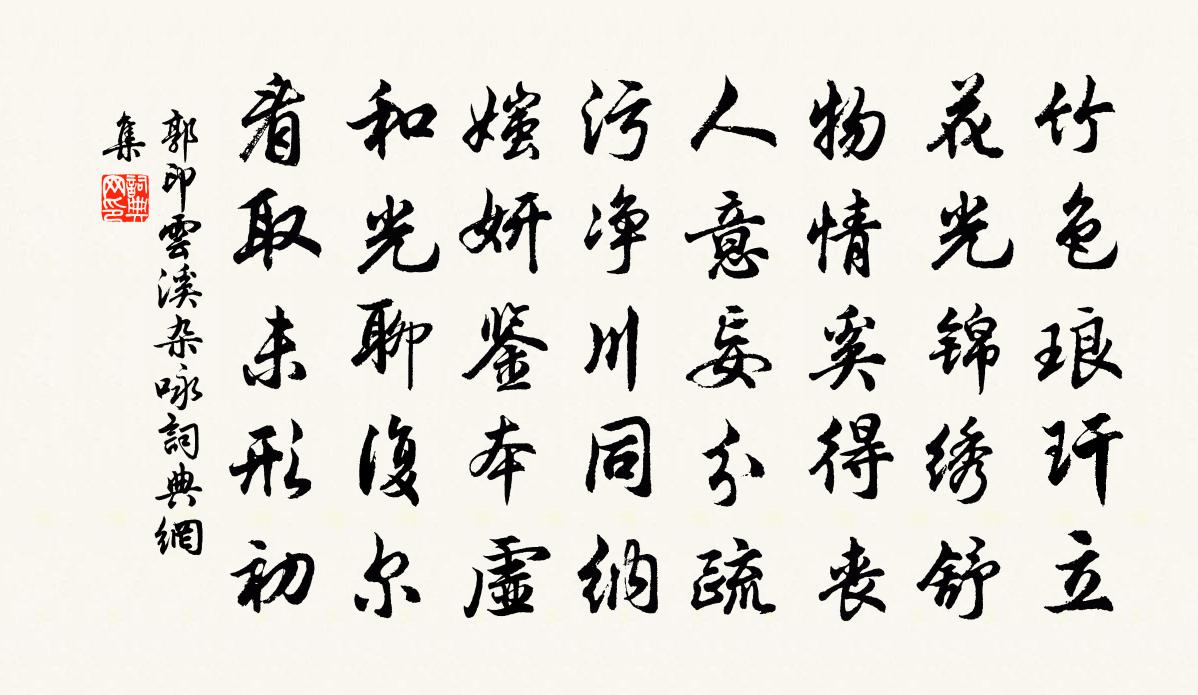 竹色琅玕立
花光锦绣舒
物情奚得丧
人意妄分疏
污净川同纳
媸妍鉴本虚
和光聊复尔
看取未形初
郭印雲溪杂咏詞典網
集
詞典网印